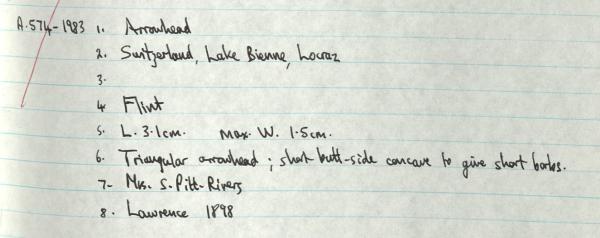 A.574-1983 1. Arrowhead
2. Switzerland, Lake Bienne, Locraz
3.
4. Flint
5. L. 3.1cm. Max. W. 1.5cm.
6. Triangular arrowhead; short butt-side concave to give short barbs.
7- Mrs. S. Pitt-Rivers
8. Lawrence 1898